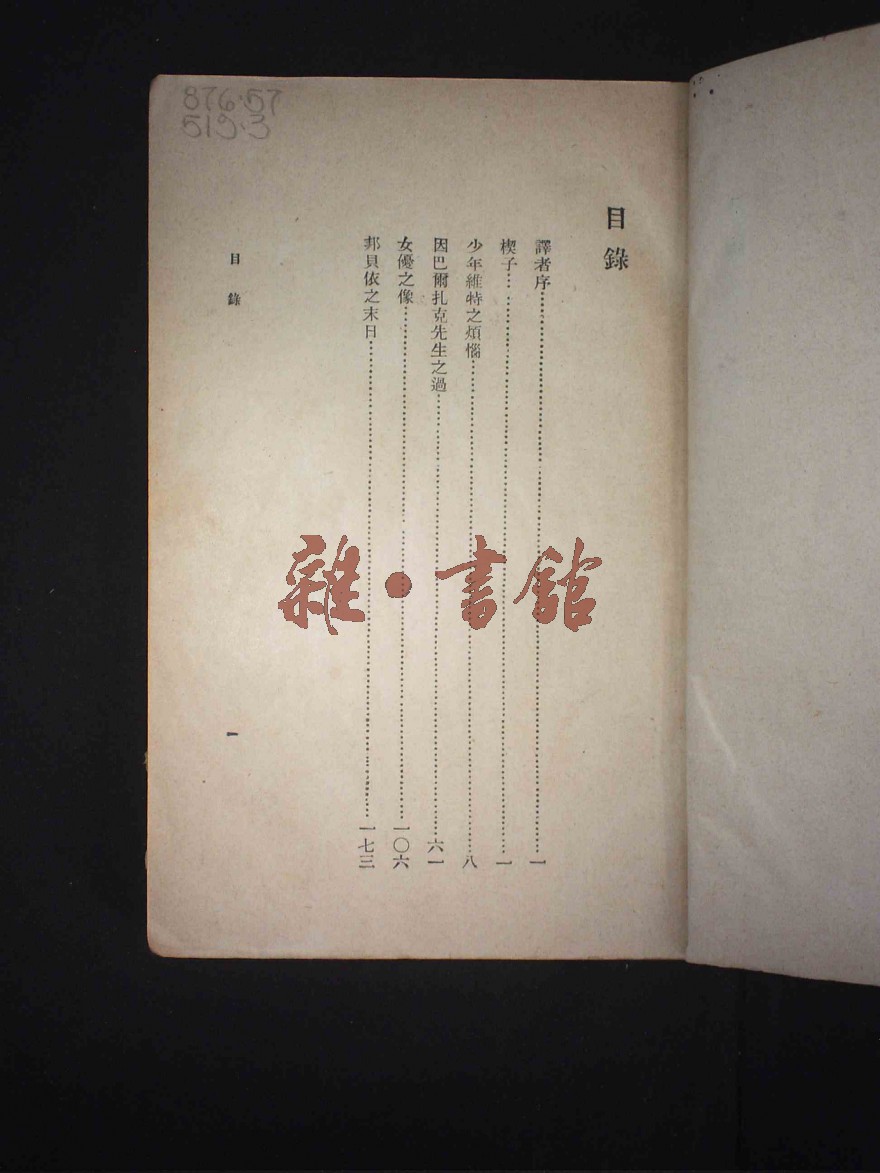 876.57
519.3
目錄
譯者序……一
楔子……一
少年維特之煩惱……八
因巴爾扎克先生之過……六一
女優之像……一〇六
邦貝依之末日……一七三
目錄
一
雜·書館